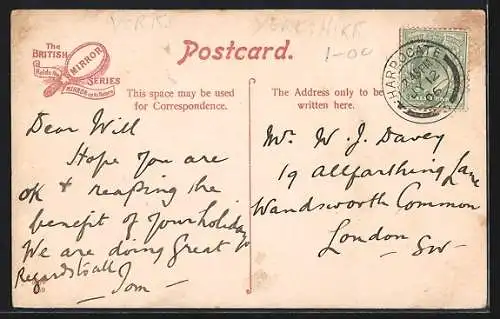 YORKSHIRE
1-00
The
BRITISH
MIRROR
SERIES
Postcard.
This space may be used
for Correspondence.
The Address only to be
written here.
HARROGATE
Dear Will
Hope you are
OK & reaping the
benefit of your holiday
We are doing great
Regards to all
Tom
Mr. W. J. Davey
19 Allfarthing Lane
Wandsworth Common
London
SW